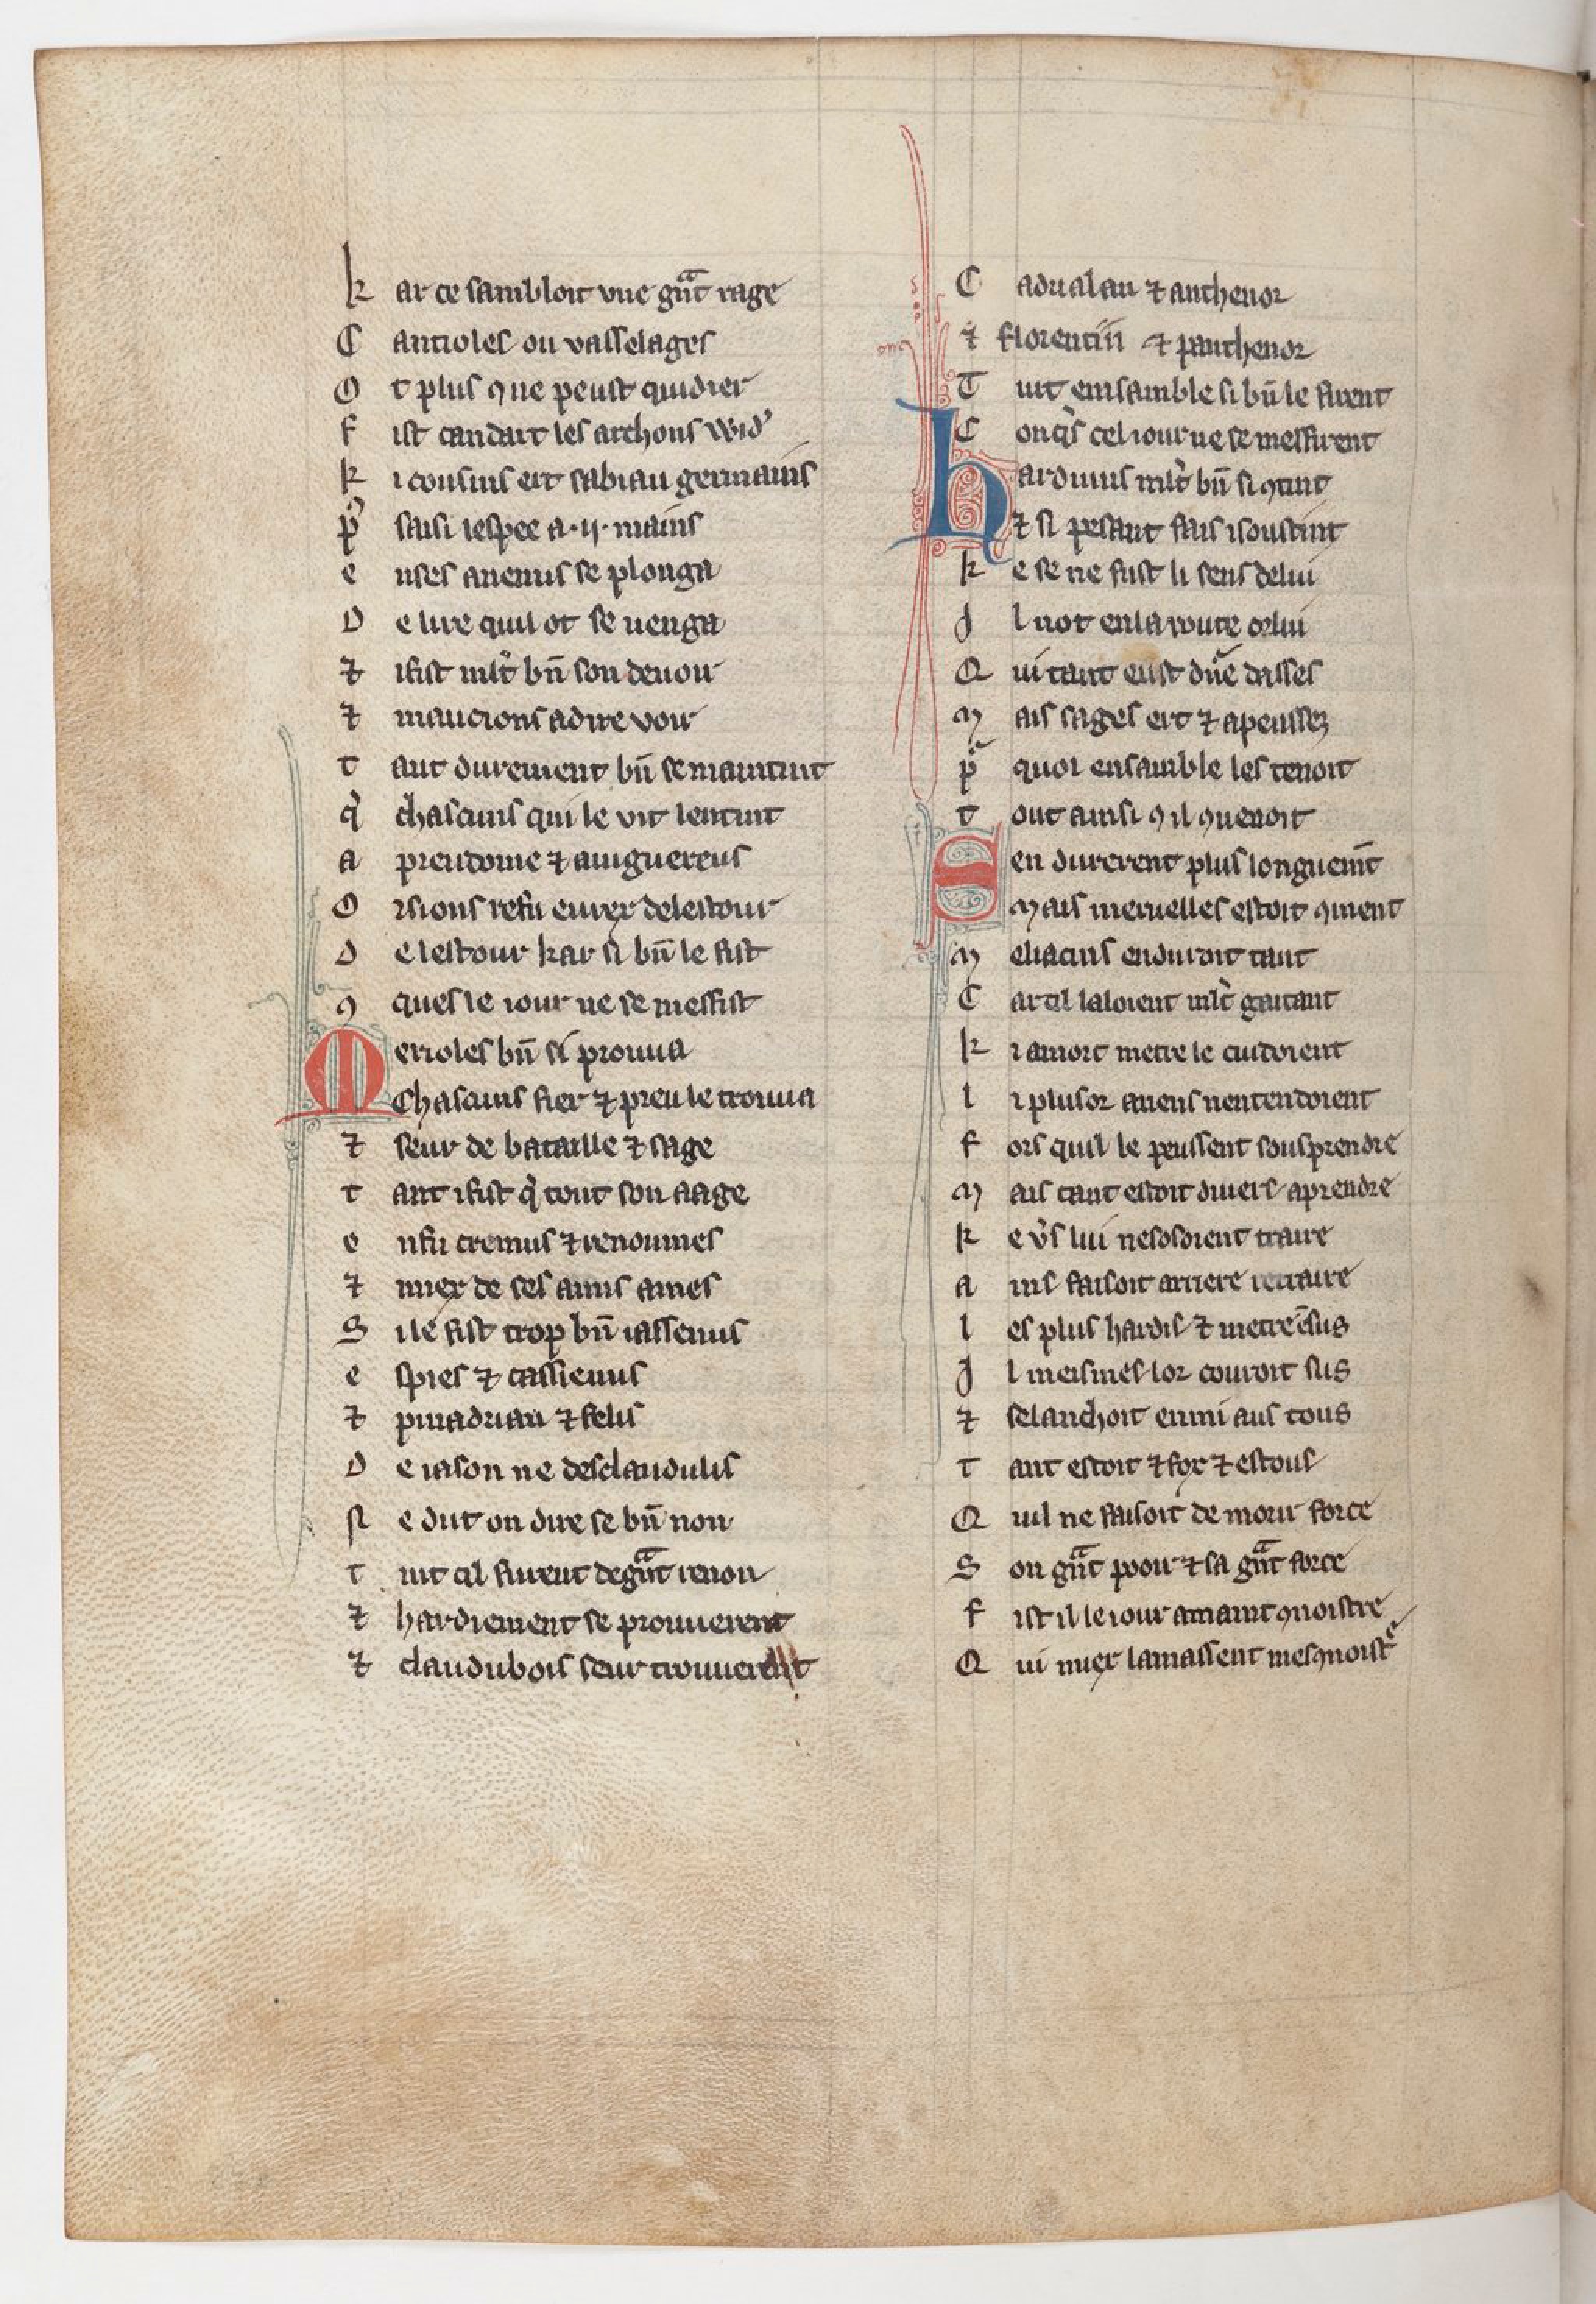 k ar ce sambloit vne gn̄t rage
C antioles ou vasselages
O t plus ꝯ ne peust quidier
f ist candart les archons wid'
k i cousins ert sabian germains
p' saisi lespee a ·ij· mains
e nses anemis se plonga
D e lire quil ot se uenga
⁊ ifist ml't bn̄ son deuoir
⁊ maucions adire voir
t ant durement bn̄ se maintint
q' chascuns qui le vit lentint
a preudome ⁊ aiuguereus
O rsions refu eurex delestour
D e lestour kar si bn̄ le fist
ꝯ ques le iour ne se messist
Merioles bn̄ si prouua
Chascuns fier ⁊ preu le trouua
⁊ seur de bataille ⁊ sage
t ant ifist q' tout son aage
e nfu cremus ⁊ renoumes
⁊ miex de ses amis ames
S ile fist trop bn̄ iassenus
e spies ⁊ cassienus
⁊ pinadrian ⁊ felis
D e iason ne desclaudulis
N e duit on dire se bn̄ non
t uit cil furent de gn̄t renon
⁊ hardiement se prouuerent
⁊ claudubois seur trouuerent
C adualan ⁊ anthenor
⁊ florentin ⁊ panthenor
T uit ensamble si bn̄ le firent
C onq's cel iour ne se messirent
hardiuis ml't bn̄ si ꝯtint
⁊ si pesant fais isoustint
k e se ne fust li sens delui
J l not enla route celui
Q ui tant eust dn̄e dasses
M ais sages ert ⁊ apenssez
p quoi ensamble les tenoit
t out ainsi ꝯ il ꝯuenoit
Sen durerent plus longuemt̄
Mais meruelles estoit ꝯment
M eliacins enduroit tant
C ar cil laloient ml't gaitant
k i amort metre le cuidoient
l i plusor aueus nentendoient
f ors quil le peussent sousprendre
M ais tant estoit diuers aprendre
k e v's lui nesosoient traire
a ins faisoit arriere retraire
l es plus hardis ⁊ metre ēsus
J l meismes lor couroit sus
⁊ selanchoit enmi aus tous
T ant estoit ⁊ fox ⁊ estous
Q uil ne faisoit de morir force
S on gn̄t pooir ⁊ sa gn̄t force
f ist il le iour amaint ꝯnoistre
Q ui miex lamassent mesꝯnoistᵉ